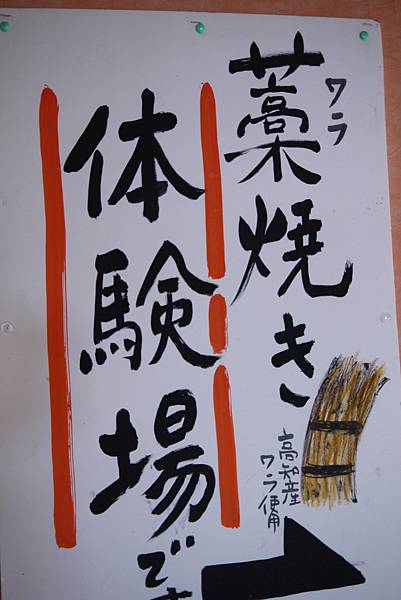 藁焼き
ワラ
高知産
ワラ使用
体験場です